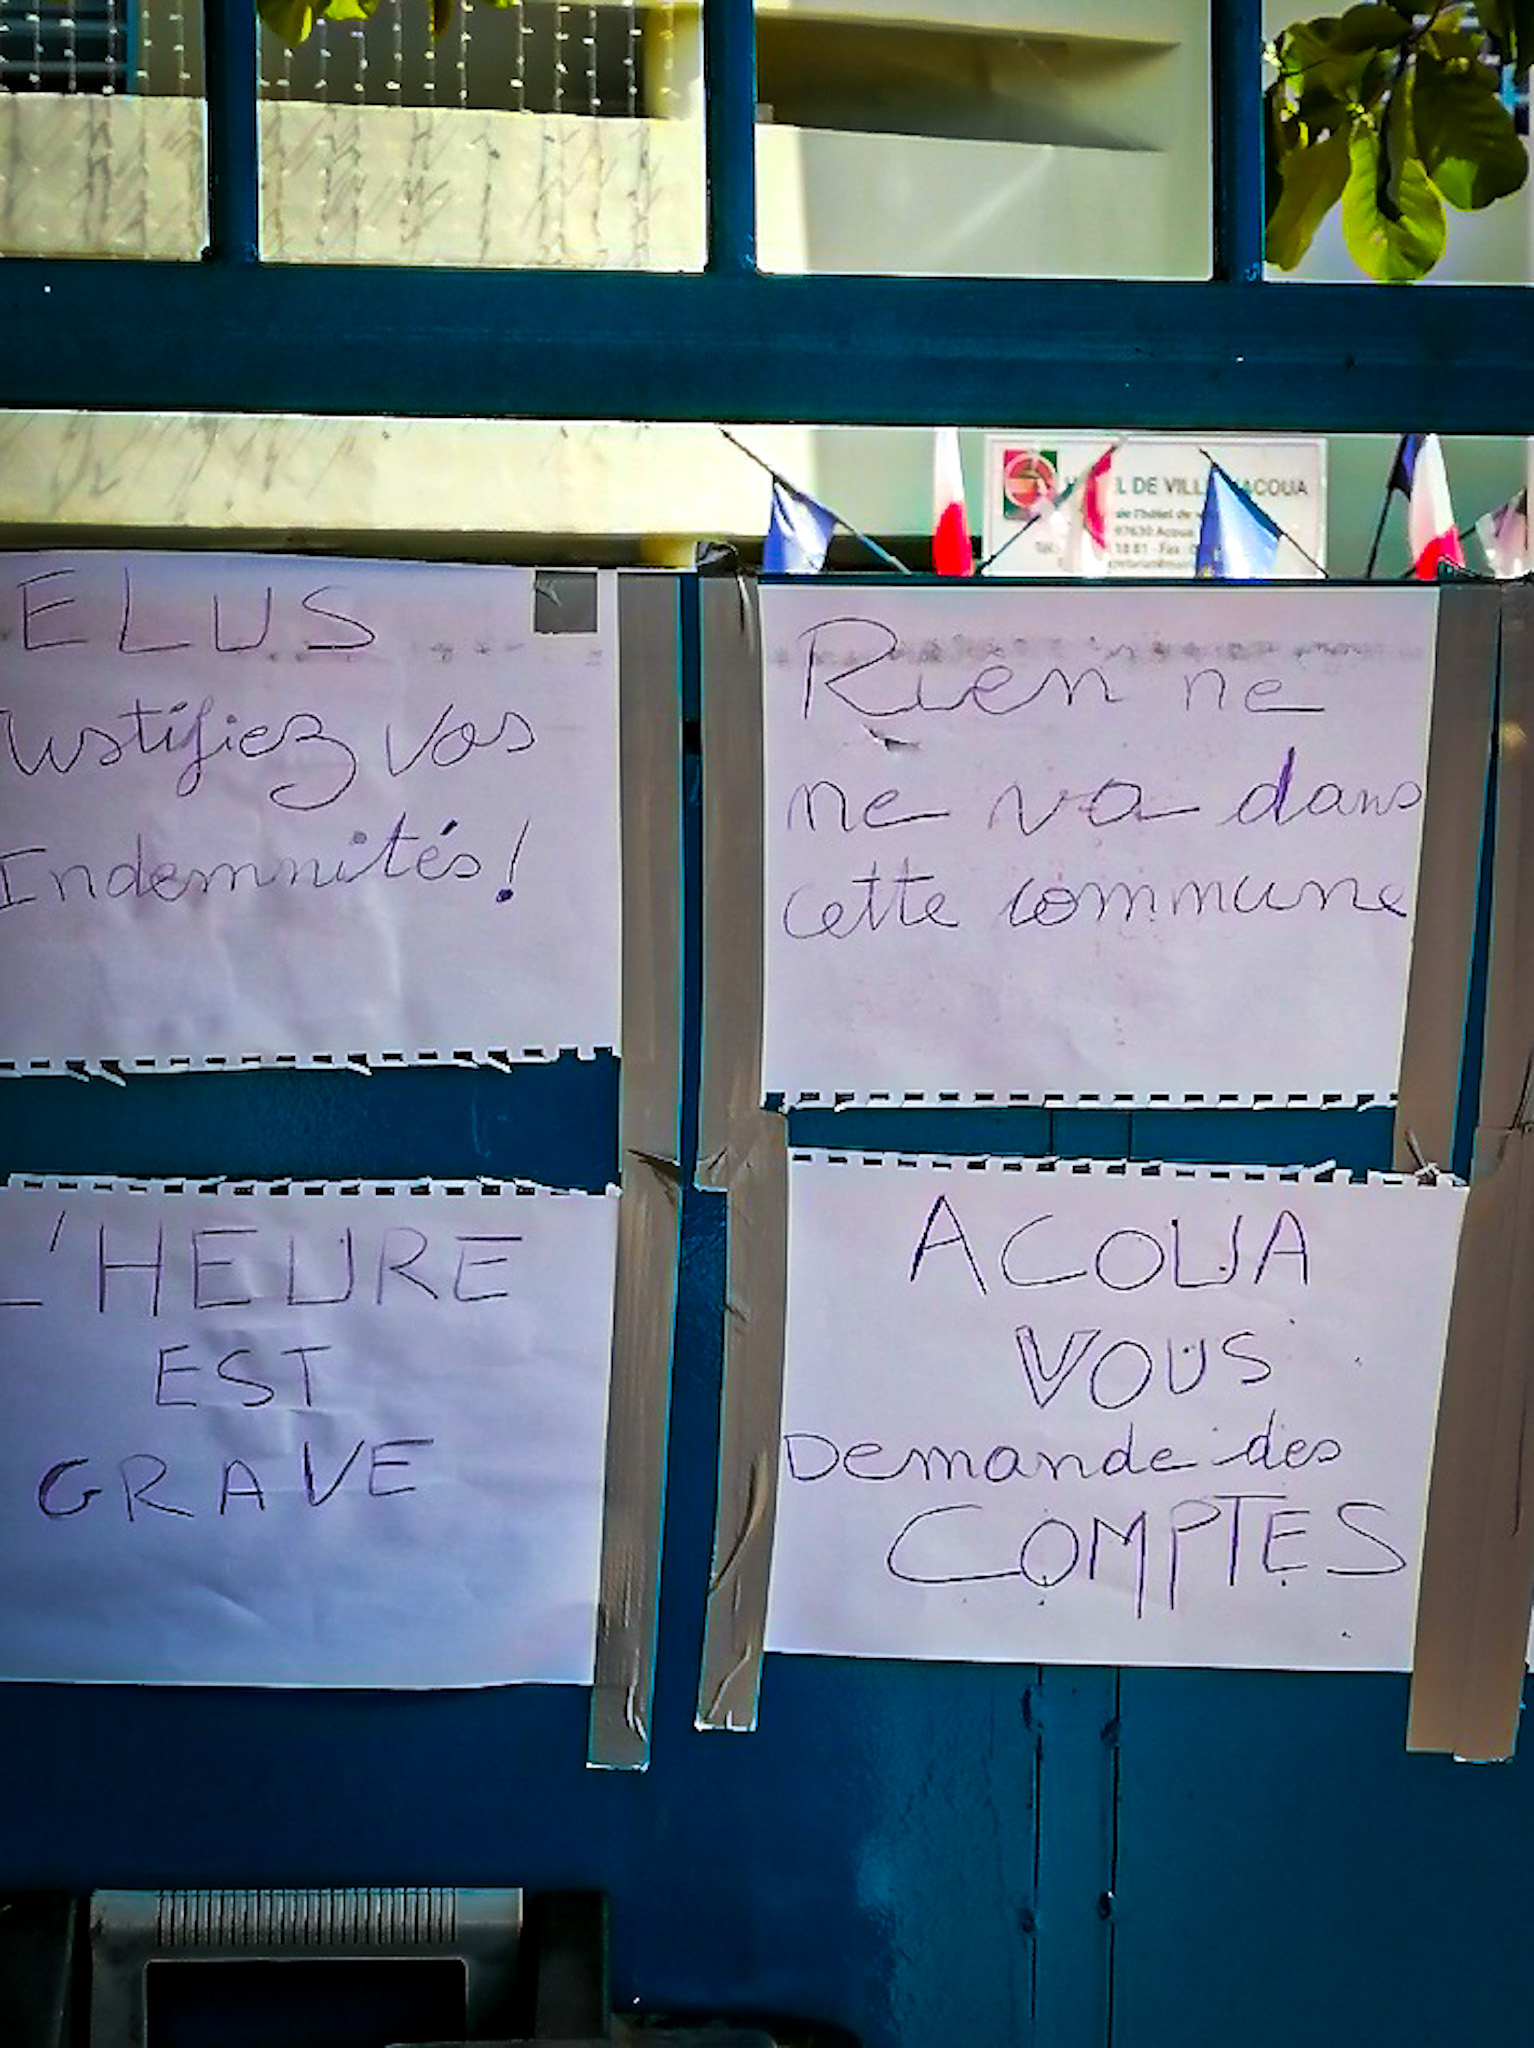 DE VILLE ACOUA
de l'hôtel de
97630 Acoua
18 81 - Fax :
ELUS
Justifiez vos
Indemnités!
Rien ne
ne va dans
cette commune
L'HEURE
EST
GRAVE
ACOUA
VOUS
Demande des
COMPTES